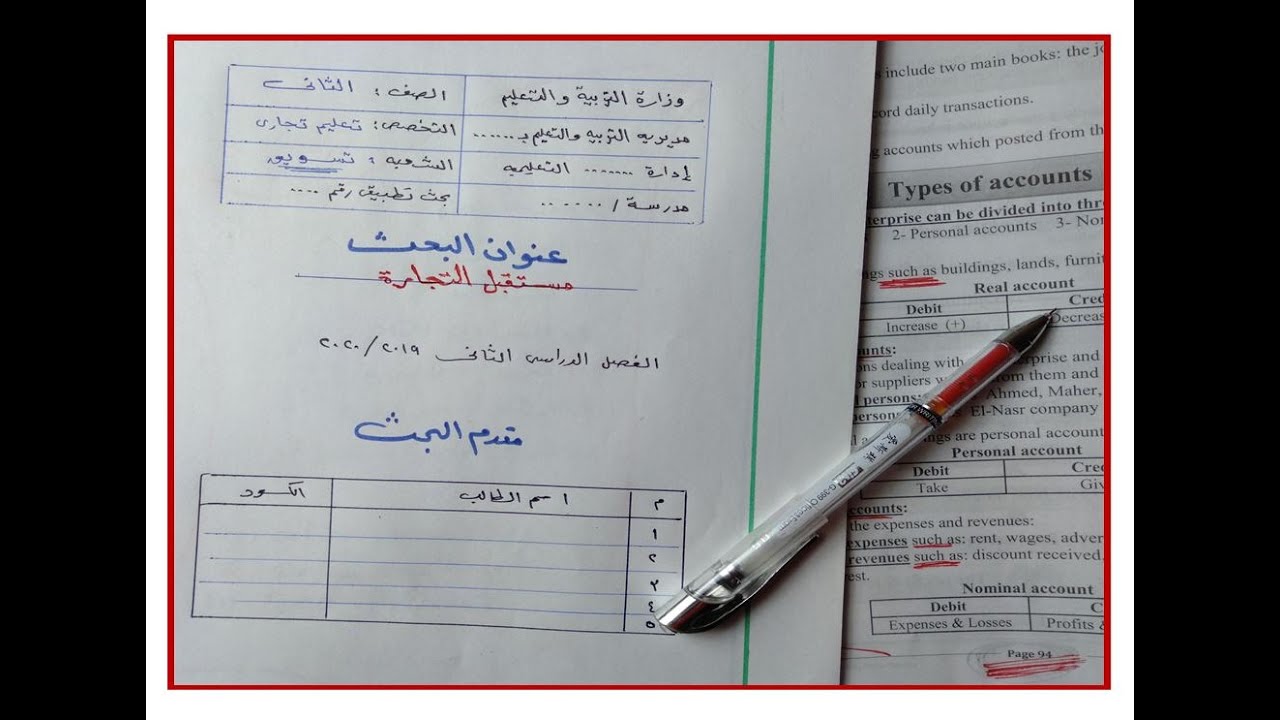 وزارة التربية والتعليم
الصف : الثانى
مديريه التربيه والتعليم بـ ......
التخصص : تعليم تجارى
إدارة ....... التعليميه
الشعبه : تسويق
مدرسة / ......
بحث تطبيق رقم ....
عنوان البحث
مستقبل التجارة
الفصل الدراسى الثانى ٢٠١٩/٢٠٢٠
مقدم البحث
م اسم الطالب الكود
١
٢
٣
٤
٥
include two main books: the
daily transactions.
accounts which posted from the
Types of accounts
can be divided into
2- Personal accounts 3-
such as buildings, lands,
Real account
Debit
Increase (+)
dealing with and
or suppliers from them and
Ahmed, Maher,
El-Nasr company
are personal
Personal account
Debit
Take
the expenses and revenues:
expenses such as: rent, wages,
revenues such as: discount received.
Nominal account
Debit
Expenses & Losses Profits &
Page 94